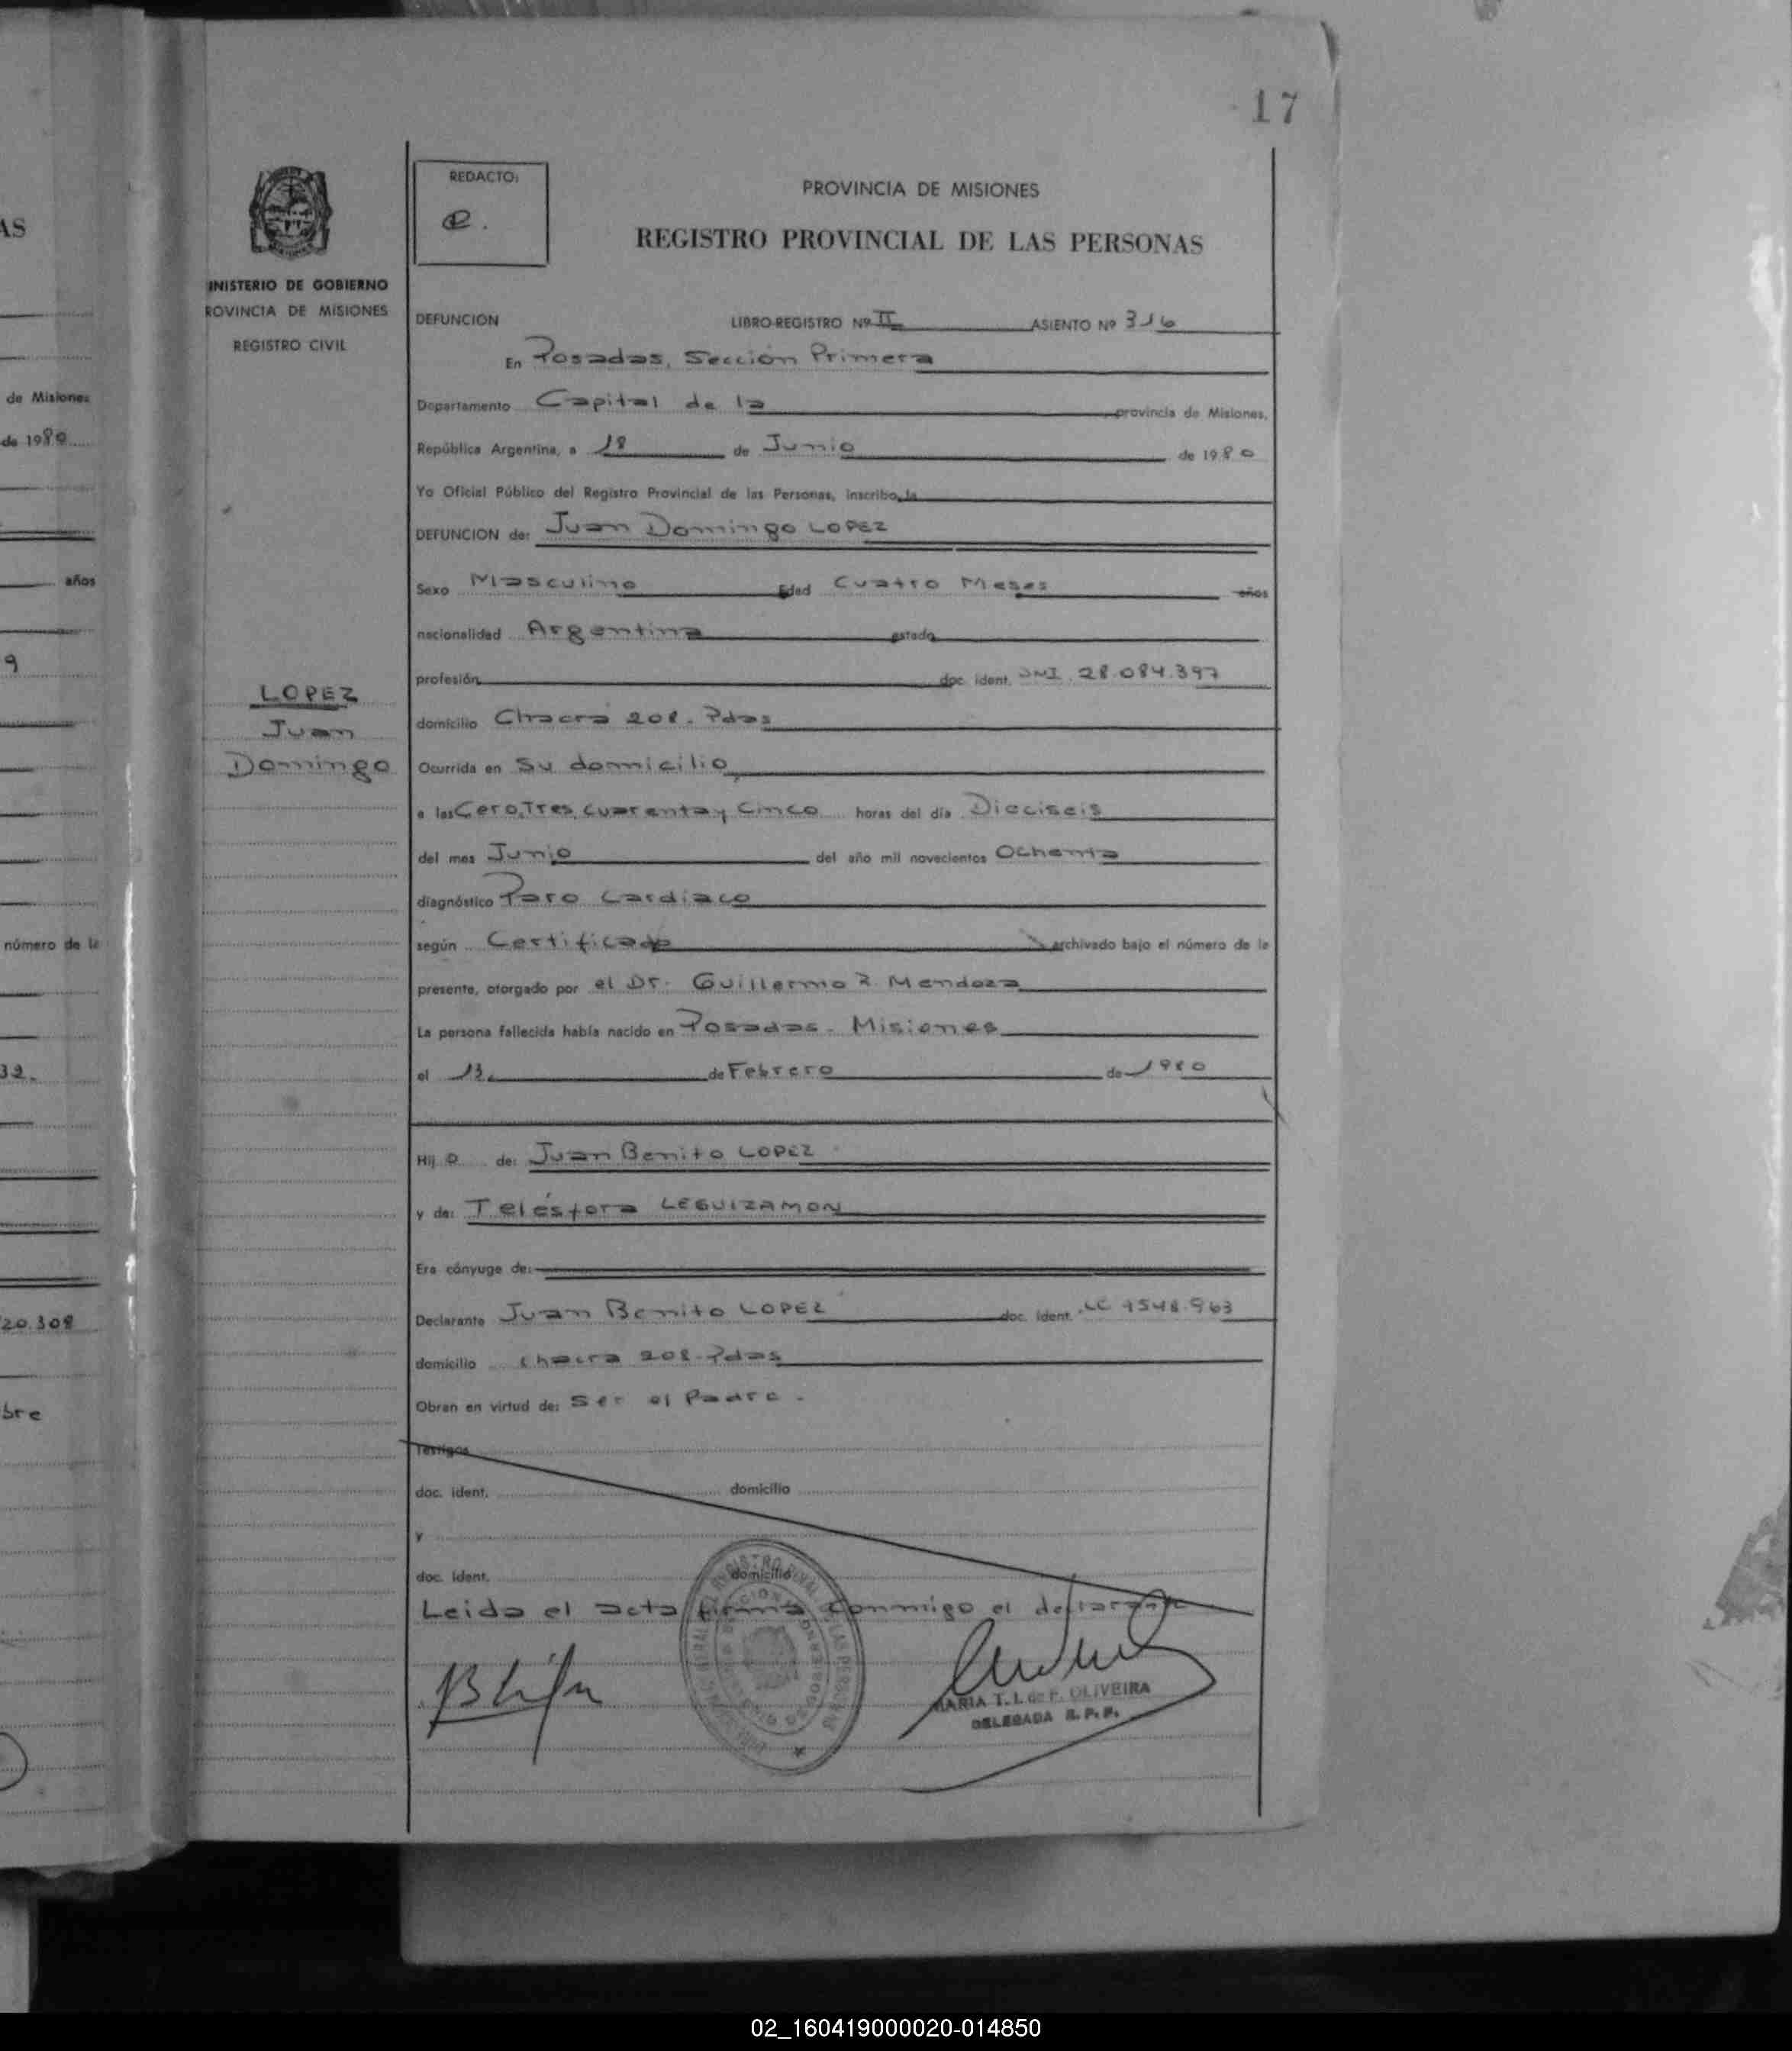 17
AS
de Misiones
de 1980
años
9
número de la
32.
20.308
bre
MINISTERIO DE GOBIERNO
PROVINCIA DE MISIONES
REGISTRO CIVIL
LOPEZ
Juan
Domingo
REDACTO:
PROVINCIA DE MISIONES
REGISTRO PROVINCIAL DE LAS PERSONAS
DEFUNCION LIBRO-REGISTRO Nº II ASIENTO Nº 316
En Posadas, Sección Primera
Departamento Capital de la provincia de Misiones,
República Argentina, a 18 de Junio de 1980
Yo Oficial Público del Registro Provincial de las Personas, inscribo la
DEFUNCION de: Juan Domingo LOPEZ
Sexo Masculino Edad Cuatro Meses años
nacionalidad Argentina estado
profesión doc. ident. DNI. 28.084.397
domicilio Chacra 208. Pdas
Ocurrida en Su domicilio
a las Cero,Tres, cuarenta y Cinco horas del día Dieciseis
del mes Junio del año mil novecientos Ochenta
diagnóstico Paro Cardiaco
según Certificado archivado bajo el número de la
presente, otorgado por el Dr. Guillermo R. Mendoza
La persona fallecida había nacido en Posadas - Misiones
el 13. de Febrero de 1980
Hijo de: Juan Benito LOPEZ
y de: Telésfora LEGUIZAMON
Era cónyuge de:
Declarante Juan Benito LOPEZ doc. ident. LE 7548.963
domicilio Chacra 208-Pdas
Obran en virtud de: Ser el Padre.
Testigos
doc. ident. domicilio
y
doc. ident. domicilio
Leida el acta firma conmigo el declarante
MARIA T. I. de F. OLIVEIRA
DELEGADA R. P. P.
02_160419000020-014850